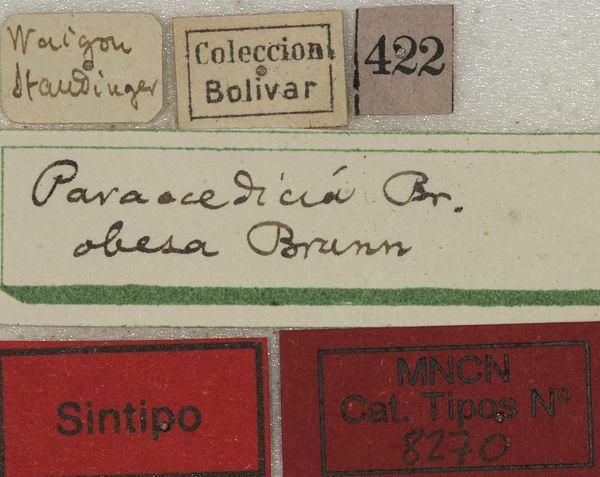 Waigou
Staudinger
Coleccion
Bolivar
422
Paraoedicia Br.
obesa Brunn
Sintipo
MNCN
Cat. Tipos Nº
8270